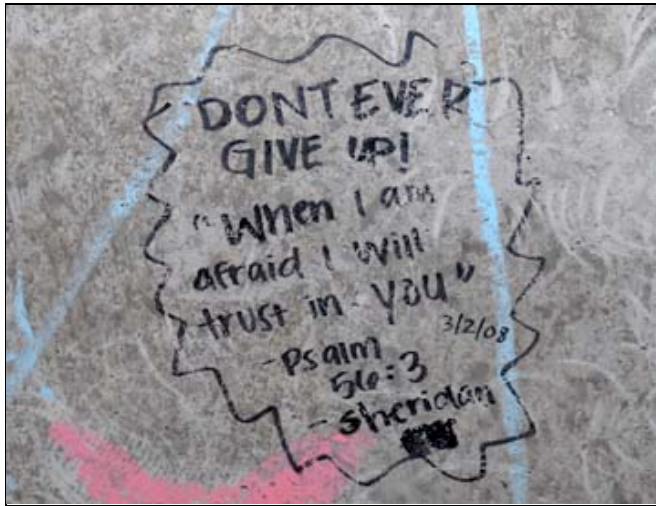 DONT EVER
GIVE UP!
"When I am
afraid I will
trust in YOU"
3/2/08
-Psalm
56:3
-sheridan